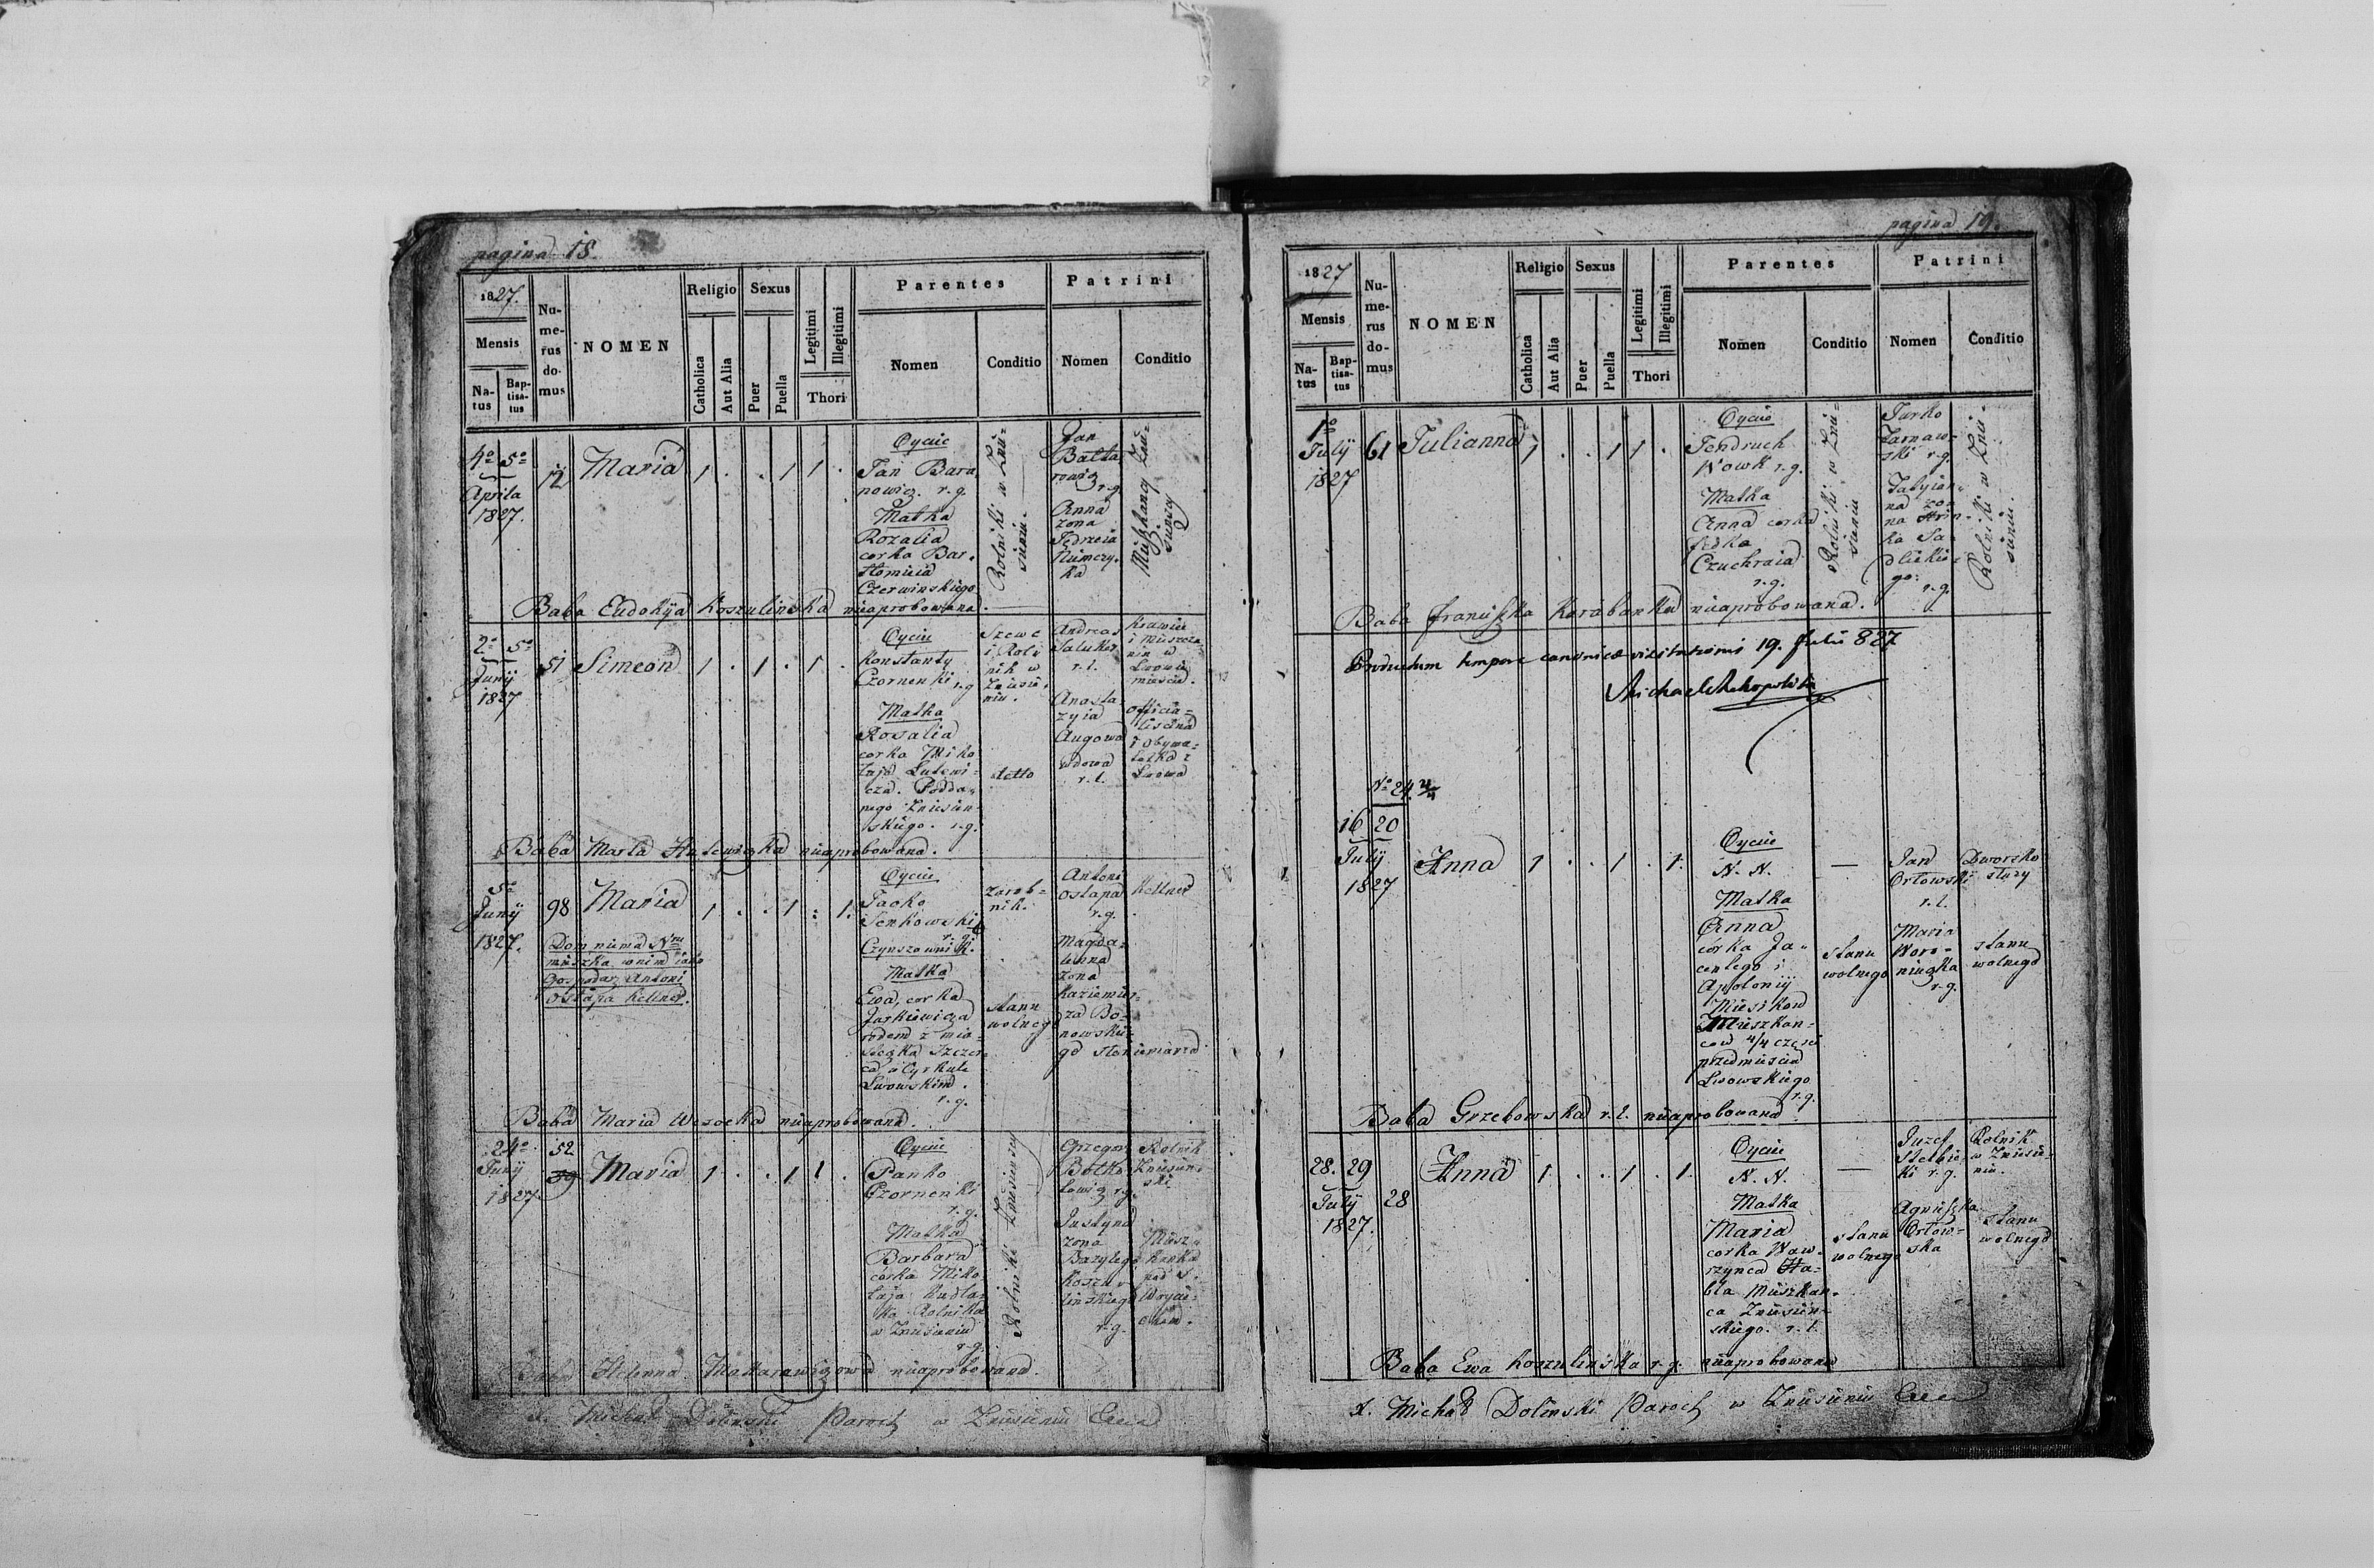 pagina 18.
1827.
Mensis
Na-
tus
Bap-
tisa-
tus
Nu-
me-
rus
do-
mus
NOMEN
Religio
Catholica
Aut Alia
Sexus
Puer
Puella
Legitimi
Illegitimi
Thori
Parentes
Nomen
Conditio
Patrini
Nomen
Conditio
4o 5o
Aprila
1827.
12
Maria
1 . . 1 1 .
Oyciec
Jan Bara
nowicz. r. g.
Matka
Rozalia
corka Bar-
tłomieia
Czerwinskiego
Rolniki w Znie-
sieniu.
Jan
Balta
rowicz
r. g.
Anna
zona
Jędrzeia
Niemczy-
ka
Baba Eudokija Koszulinska nieaprobowana.
2o 5o
Junij
1827
51
Simeon
1 . 1 . 1 .
Oyciec
Konstanty
Czornenki r. g
Matka
Rosalia
corka Miko
łaja
cza. Podda-
nego Zniesien-
skiego. r. g.
Szewc
i Rol
nik w
Zniesie-
niu.
detto
Andreas
r. l.
Anasta
zyia
wdowa
r. l.
Krawiec
i Mieszcza
nin w
Lwowie
miescie.
officia-
listka
i obywa-
telka z
Lwowa
Baba Marta nieaprobowana.
5o
Junij
1827.
98
Maria
1 . . 1 . 1.
Dom niema Nru
mieszka w nim iako
Gospodarz Antoni
Ostapa Kellner.
Oyciec
Jacko
Senkowski
r. g.
Czynszownik.
Matka
Ewa, corka
Jaskiewicza
rodem z mia-
steczka Szczer-
ca, w Cyrkule
Lwowskim.
r. g.
zarob-
nik.
stanu
wolnego
Antoni
Ostapa
r. g.
Magda-
lenna
zona
Kaziemier-
za Bo-
nowskie-
go
Kellner
Baba Maria Wesocka nieaprobowana.
24o
Junij
1827
52
39
Maria
1 . . 1 1 .
Oyciec
Panko
Czornenki
r. g.
Matka
Barbara
córka Miko
łaja Kudla-
ka Rolnika
w Zniesieniu
r. g.
Rolniki Zniesienscy
Grzegor
Bołko-
towicz r. g.
Justyna
zona
Bazylego
Koszu-
linskiego
r. g.
Rolnik
Zniesien-
ski
Miesz-
kanka
pod S.
Baba Helenna Makarewiczowa nieaprobowana.
X. Michał Dolinski Paroch w Zniesieniu
pagina 19.
1827
Mensis
Na-
tus
Bap-
tisa-
tus
Nu-
me-
rus
do-
mus
NOMEN
Religio
Catholica
Aut Alia
Sexus
Puer
Puella
Legitimi
Illegitimi
Thori
Parentes
Nomen
Conditio
Patrini
Nomen
Conditio
1o
Julij
1827
61
Julianna
1 . . 1 1 .
Oyciec
Jendruch
Nowk r. g.
Matka
Anna corka
fedka
Czuchraia
r. g.
Rolniki w Znie-
sieniu
Jurko
Zarnaw-
ski r. g.
Tatyian-
na zon
na Hrin-
ka Sa-
dlickie-
go.
r. g.
Rolniki w Znie-
sieniu.
Baba Franciszka Korabanka nieaprobowana.
Productum tempore canonicae visitationis 19. Julii 827
Michael Metropolita
No 24 4/4
16 20
Julij
1827
Anna
1 . . 1 . 1.
Oyciec
N. N.
Matka
Anna
córka Ja-
centego i
Apolonij
Miesikow
Mieszkan-
cow 4/4 częsci
przedmiescia
Lwowskiego
r. g.
—
stanu
wolnego
Jan
Orłowski
r. l.
Maria
Woro-
niuzka
r. g.
Dworsko
słuzy
stanu
wolnego
Baba Grzebowska r. l. nieaprobowana
28. 29
Julij
1827.
28
Anna
1 . . 1 . 1.
Oyciec
N. N.
Matka
Maria
corka Waw-
rzynca Ha-
bla Mieszkan-
ca Zniesien-
skiego. r. l.
—
stanu
wolnego
Juzef
Stelnic
ki r. g.
Agnieszka
Orłow-
ska
Rolnik
w Zniesie-
niu.
stanu
wolnego
Baba Ewa Koszulinska r. g. nieaprobowana
X. Michał Dolinski Paroch w Zniesieniu